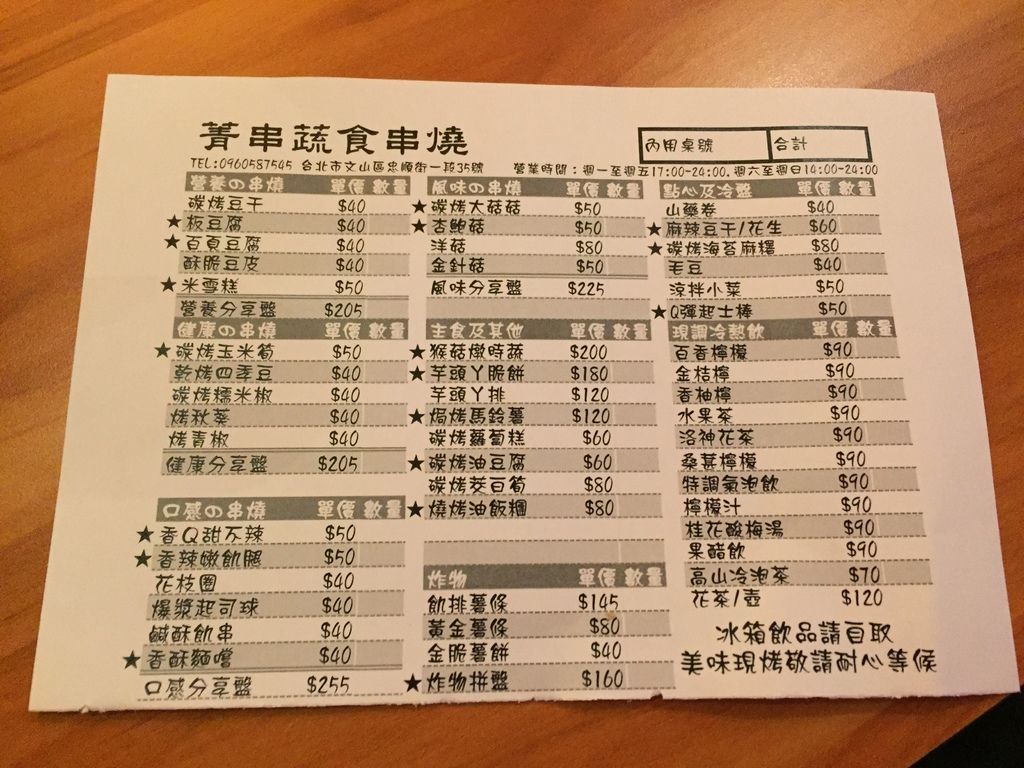 菁串蔬食串燒
內用桌號 合計
TEL:0960587545 台北市文山區忠順街一段35號 營業時間:週一至週五17:00-24:00.週六至週日14:00-24:00
營養の串燒 單價 數量
碳烤豆干 $40
★板豆腐 $40
★百頁豆腐 $40
酥脆豆皮 $40
★米雪糕 $50
營養分享盤 $205
健康の串燒 單價 數量
★碳烤玉米筍 $50
乾烤四季豆 $40
碳烤糯米椒 $40
烤秋葵 $40
烤青椒 $40
健康分享盤 $205
口感の串燒 單價 數量
★香Q甜不辣 $50
★香辣嫩飢腿 $50
花枝圈 $40
爆漿起司球 $40
鹹酥飢串 $40
★香酥麵嚐 $40
口感分享盤 $255
風味の串燒 單價 數量
★碳烤大菇菇 $50
★杏鮑菇 $50
洋菇 $80
金針菇 $50
風味分享盤 $225
主食及其他 單價 數量
★猴菇燉時蔬 $200
★芋頭丫脆餅 $180
芋頭丫排 $120
★焗烤馬鈴薯 $120
碳烤蘿蔔糕 $60
★碳烤油豆腐 $60
碳烤茭白筍 $80
★燒烤油飯糰 $80
炸物 單價 數量
飢排薯條 $145
黃金薯條 $80
金脆薯餅 $40
★炸物拼盤 $160
點心及冷盤 單價 數量
山藥卷 $40
★麻辣豆干/花生 $60
★碳烤海苔麻糬 $80
毛豆 $40
涼拌小菜 $50
★Q彈起士棒 $50
現調冷熱飲 單價 數量
百香檸檬 $90
金桔檸 $90
香柚檸 $90
水果茶 $90
洛神花茶 $90
桑葚檸檬 $90
特調氣泡飲 $90
檸檬汁 $90
桂花酸梅湯 $90
果醋飲 $90
高山冷泡茶 $70
花茶/壺 $120
冰箱飲品請自取
美味現烤敬請耐心等候